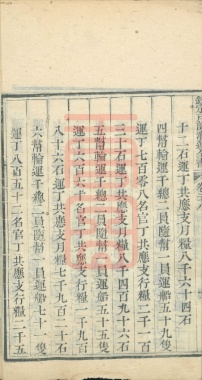 十二石運丁共應支月糧八千六十四石
四幇輪運千總二員隨幇一員運船五十九隻
運丁七百零八名官丁共應支行糧二千一百
三十石運丁共應支月糧八千四百九十六石
五幇輪運千總二員隨幇一員運船五十五隻
運丁六百六十名官丁共應支行糧一千九百
八十六石運丁共應支月糧七千九百二十石
六幇輪運千總二員隨幇一員運船七十一隻
運丁八百五十二名官丁共應支行糧二千五